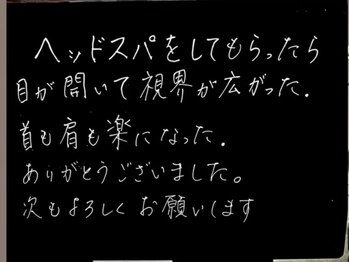 ヘッドスパをしてもらったら
目が開いて視界が広がった.
首も肩も楽になった.
ありがとうございました。
次もよろしくお願いします